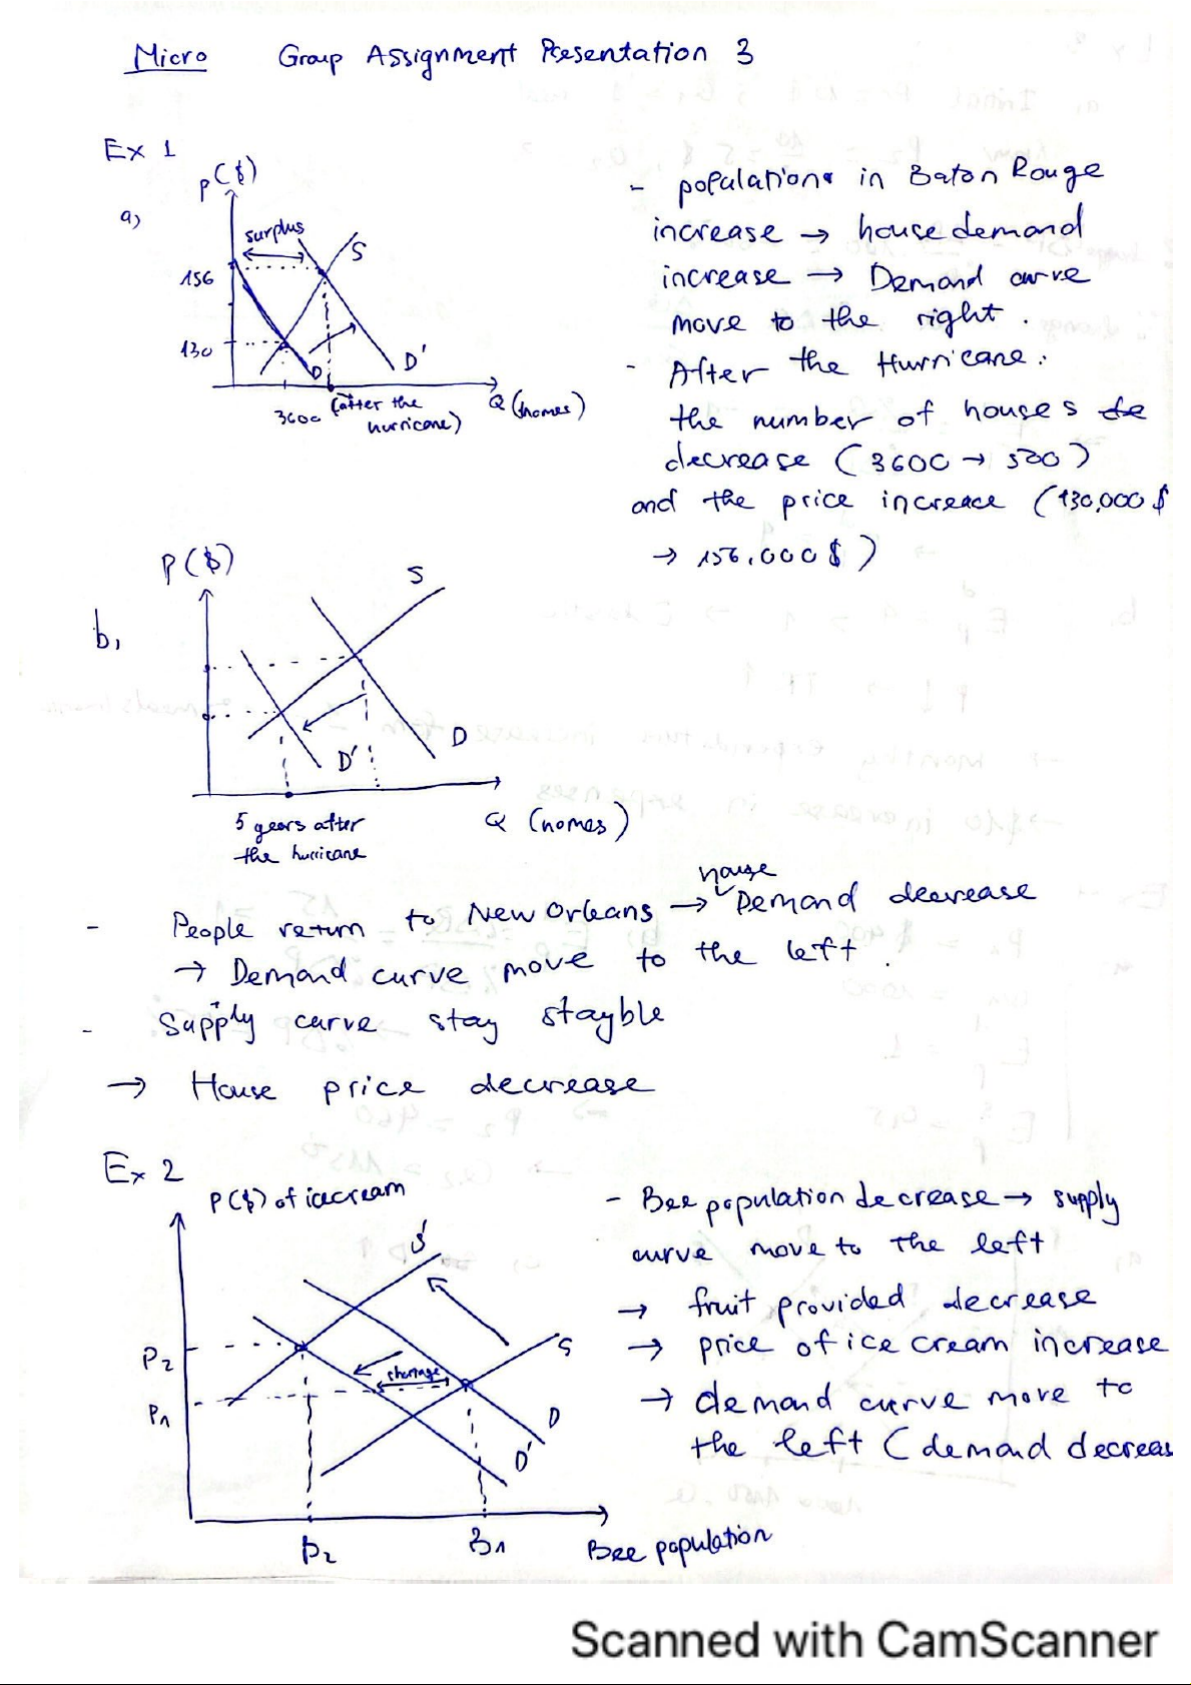 Micro Group Assignment Presentation 3
Ex 1
a)
P($)
surplus
S
156
130
D
D'
3600
(after the
hurricane)
Q (homes)
- population in Baton Rouge
increase → house demand
increase → Demand curve
move to the right.
- After the Hurricane:
the number of houses de
decrease (3600 → 500)
and the price increase (130,000$
→ 156.000$)
b,
P($)
S
D
D'
5 years after
the hurricane
Q (homes)
house
- People return to New Orleans → Demand decrease
→ Demand curve move to the left.
- Supply curve stay stayble
→ House price decrease
Ex 2
P($) of icecream
S'
S
P2
P1
shortage
D
D'
B2
B1
Bee population
- Bee population decrease → supply
curve move to the left
→ fruit provided decrease
→ price of ice cream increase
→ demand curve move to
the left (demand decreas
Scanned with CamScanner